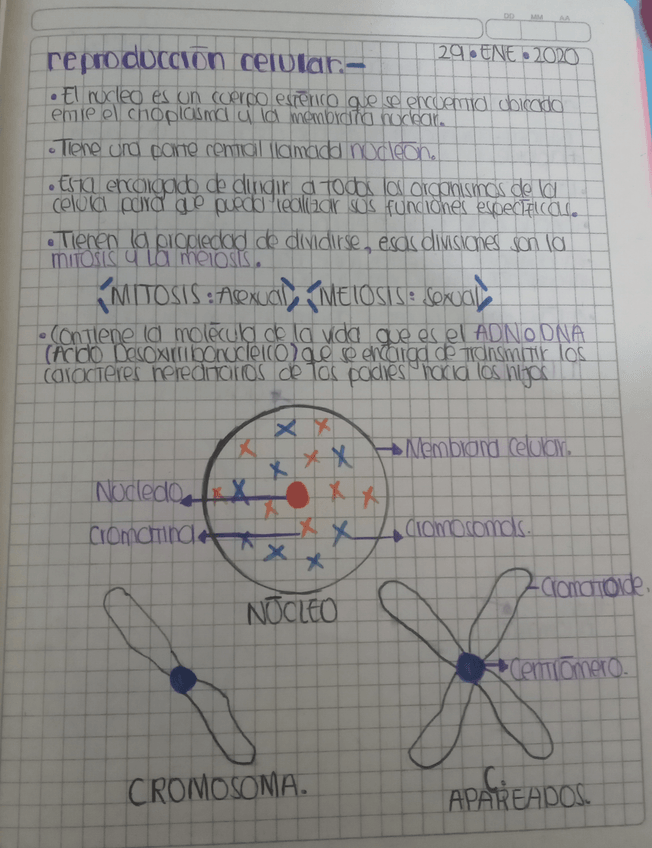 DD MM AA
reproducción celular.- 29•ENE•2020
• El núcleo es un cuerpo esférico que se encuentra ubicado
entre el citoplasma y la membrana nuclear.
• Tiene una parte central llamada nucleón.
• Esta encargado de dirigir a todos los organismos de la
celula para que pueda realizar sus funciones específicas.
• Tienen la propiedad de dividirse, esas divisiones son la
mitosis y la meiosis.
MITOSIS: Asexual MEIOSIS: sexual
• Contiene la molécula de la vida que es el ADN o DNA
(Ácido Desoxirribonucleico) que se encarga de transmitir los
caracteres hereditarios de los padres hacia los hijos
Membrana celular.
Nucleolo
Cromatina
Cromosomas.
NÚCLEO
Cromatoide.
Centrómero.
CROMOSOMA.
C.
APAREADOS.